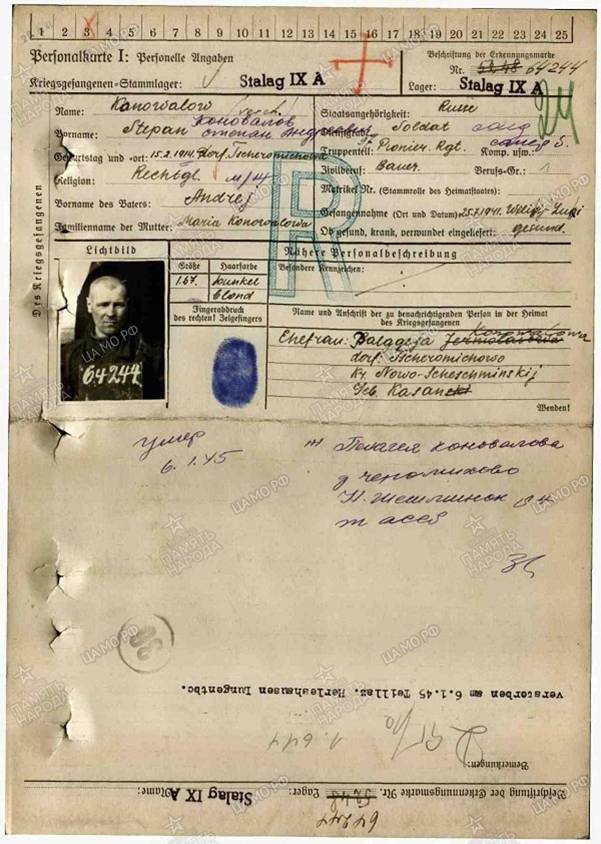 1 2 3 4 5 6 7 8 9 10 11 12 13 14 15 16 17 18 19 20 21 22 23 24 25
Personalkarte I: Personelle Angaben
Beschriftung der Erkennungsmarke
Nr. 64244
Kriegsgefangenen-Stammlager: Stalag IX A
Lager: Stalag IX A
24
Des Kriegsgefangenen
Name: Konowalow
Коновалов
Vorname: Stepan
степан
Geburtstag und -ort: 15.2.1914. Dorf. Tscheromichowo
Religion:
Vorname des Vaters: Andrej
Familienname der Mutter: Maria Konowalowa
Staatsangehörigkeit: Russe
Dienstgrad: Soldat
Truppenteil: Pionier. Rgt. Komp. usw.:
Zivilberuf: Bauer. Berufs-Gr.: 1
Matrikel Nr. (Stammrolle des Heimatstaates):
Gefangennahme (Ort und Datum): 25.7.1941.
Ob gesund, krank, verwundet eingeliefert: gesund.
R
Lichtbild
64244
Nähere Personalbeschreibung
Größe Haarfarbe
1.67. dunkelblond
Besondere Kennzeichen:
Fingerabdruck
des rechten! Zeigefingers
Name und Anschrift der zu benachrichtigenden Person in der Heimat
des Kriegsgefangenen
Ehefrau: Palageja
Dorf. Tscheromichowo
Kr. Nowo-Scheschminskij
Geb. Kasan
Wenden!
умер
6.1.45
Пелагея Коновалова
д Черомихово
36
verstorben am 6.1.45 Teillaz. Herleshausen Lungentbc.
Bemerkungen:
Beschriftung der Erkennungsmarke Nr. 64244
Lager: Stalag IX A
Name:
ЦАМО.РФ
ПАМЯТЬ НАРОДА